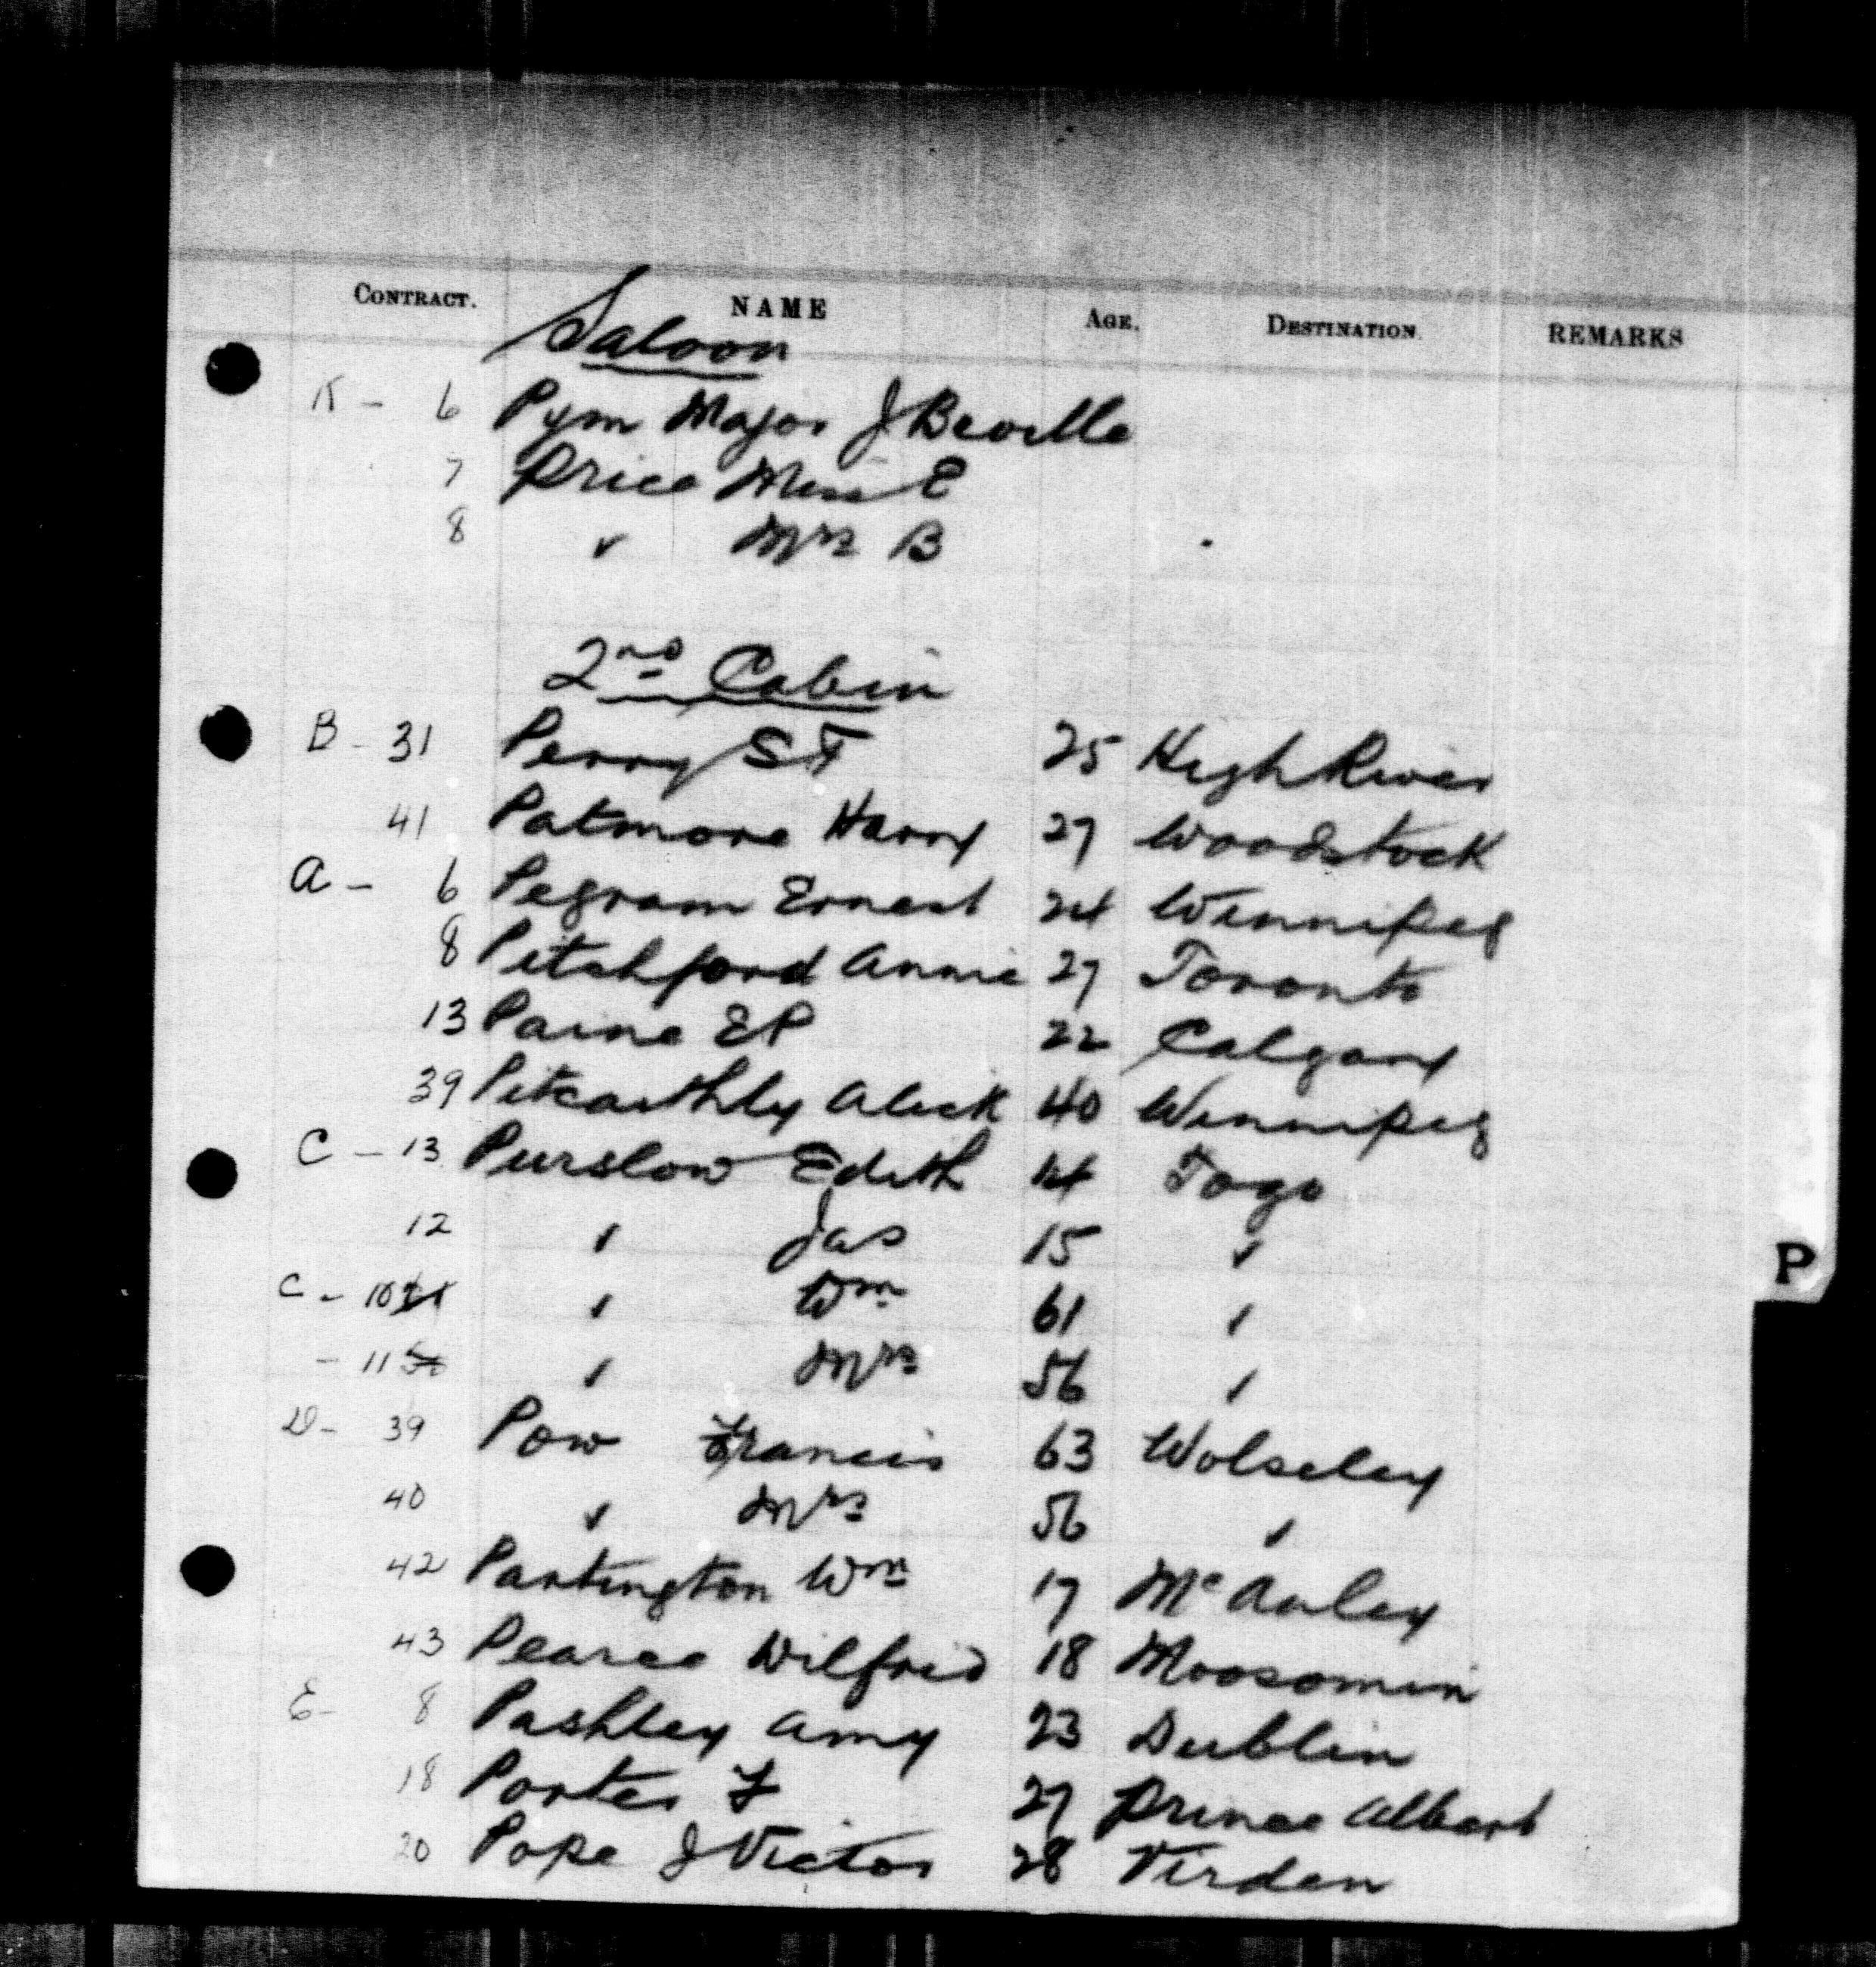 CONTRACT. NAME AGE. DESTINATION. REMARKS
Saloon
K - 6 Pym Major J Beville
7 Price Miss E
8 " Mrs B
2nd Cabin
B - 31 Perry S F 25 High River
41 Patmore Harry 27 Woodstock
A - 6 Pegram Ernest 24 Winnipeg
8 Pitchford Annie 27 Toronto
13 Paine E P 22 Calgary
39 Pitcaithly Alick 40 Winnipeg
C - 13 Purslow Edith 14 Togo
12 " Jas 15 "
C - 10 " Wm 61 "
P
- 11 " Mrs 56 "
D - 39 Pow Francis 63 Wolseley
40 " Mrs 56 "
42 Partington Wm 17 McAuley
43 Pearce Wilfrid 18 Moosomin
E - 8 Pashley Amy 23 Dublin
18 Porter F 27 Prince Albert
20 Pope J Victor 28 Virden